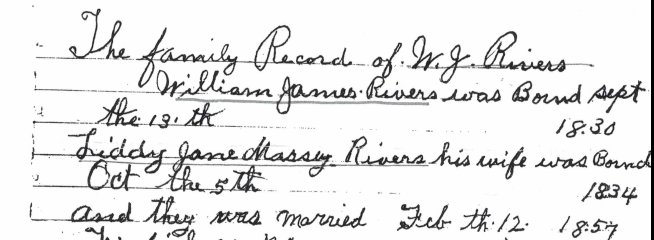 The family Record of W. J. Rivers
William James Rivers was Bornd sept
the 13. th 18.30
Liddy Jane Massey Rivers his wife was Bornd
Oct the 5th 1834
and they was married Feb th. 12. 18.57